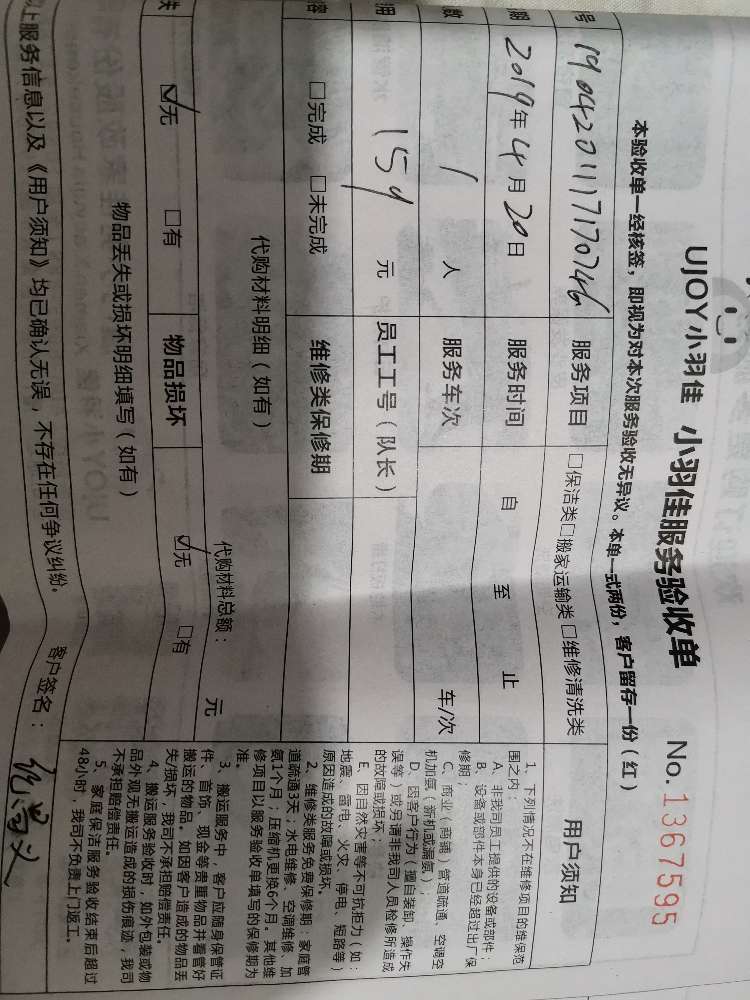 UJOY小羽佳 小羽佳服务验收单 No.1367595
本验收单一经核签，即视为对本次服务验收无异议。本单一式两份，客户留存一份（红）
号 19042011717074 服务项目 □保洁类□搬家运输类□维修清洗类
期 2019年4月20日 服务时间 自 至 止
数 1 人 服务车次 车/次
用 159 元 员工工号（队长）
容 □完成 □未完成 维修类保修期
代购材料明细（如有）
代购材料总额： 元
失 ☑无 □有 物品损坏 ☑无 □有
物品丢失或损坏明细填写（如有）
以上服务信息以及《用户须知》均已确认无误，不存在任何争议纠纷。
客户签名：
用户须知
1、下列情况不在维修项目的维保范
围之内：
A、非我司员工提供的设备或部件；
B、设备或部件本身已经超过出厂保
修期；
C、商业（商铺）管道疏通、空调空
机加氨（新机或漏氨）；
D、因客户行为（擅自装卸、操作失
误等）或另请非我司人员检修所造成
的故障或损坏；
E、因自然灾害等不可抗拒力（如：
地震、雷电、火灾、停电、短路等）
原因造成的故障或损坏。
2、维修类服务免费保修期：家庭管
道疏通3天；水电维修、空调维修、加
氨1个月；压缩机更换6个月。其他维
修项目以服务验收单填写的保修期为
准。
3、搬运服务中，客户应随身保管证
件、首饰、现金等贵重物品并看管好
搬运的物品。如因客户造成的物品丢
失/损坏，我司不承担赔偿责任。
4、搬运服务验收时，如外包装或物
品外观无搬运造成的损伤痕迹，我司
不承担赔偿责任。
5、家庭保洁服务验收结束后超过
48小时，我司不负责上门返工。